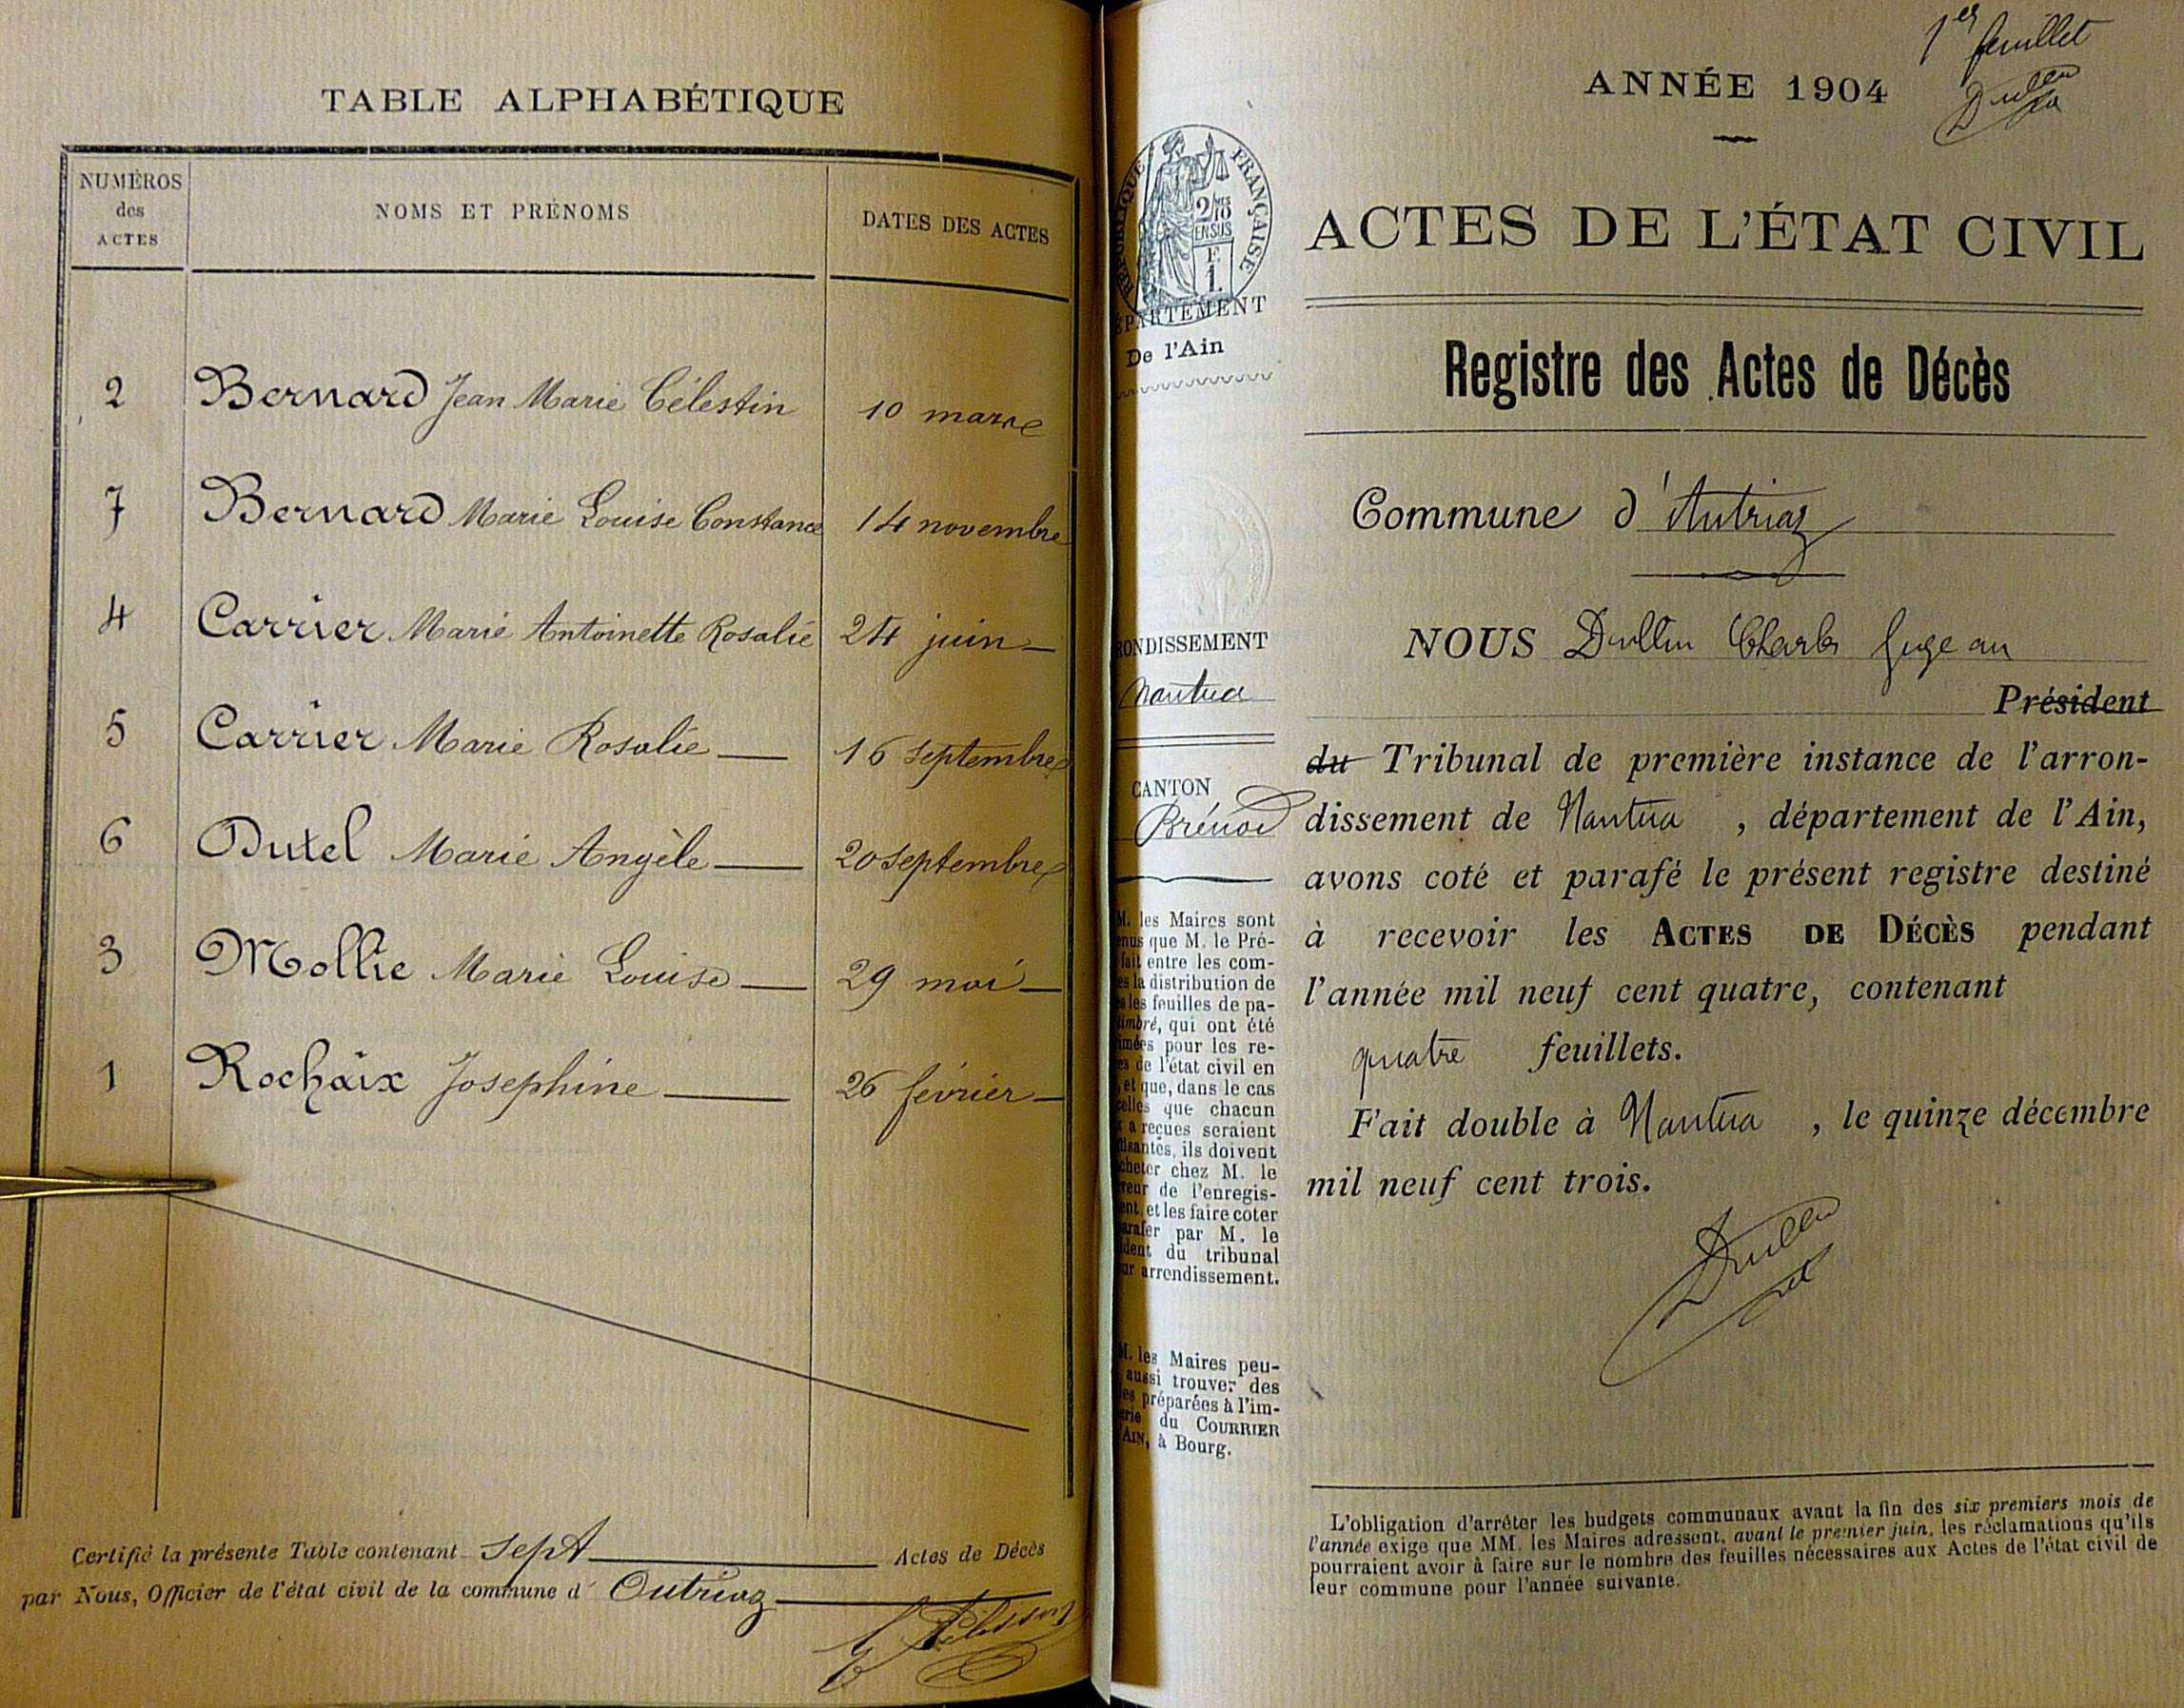 TABLE ALPHABÉTIQUE
NUMÉROS
des
ACTES
NOMS ET PRÉNOMS
DATES DES ACTES
2 Bernard Jean Marie Célestin 10 mars
7 Bernard Marie Louise Constance 14 novembre
4 Carrier Marie Antoinette Rosalie 24 juin
5 Carrier Marie Rosalie 16 septembre
6 Dutel Marie Angèle 20 septembre
3 Mollie Marie Louise 29 mai
1 Rochaix Josephine 26 février
Certifié la présente Table contenant sept Actes de Décès
par Nous, Officier de l'état civil de la commune d' Outriaz
1er feuillet
ANNÉE 1904
RÉPUBLIQUE FRANÇAISE
2/10
EN SUS
F.
1.
ÉPARTEMENT
De l'Ain
RONDISSEMENT
Nantua
CANTON
Brénod
M. les Maires sont
enus que M. le Pré-
fait entre les com-
es la distribution de
s les feuilles de pa-
timbré, qui ont été
imées pour les re-
es de l'état civil en
, et que, dans le cas
celles que chacun
r a reçues seraient
fisantes, ils doivent
cheter chez M. le
veur de l'enregis-
ent, et les faire coter
arafer par M. le
ident du tribunal
ur arrondissement.
M. les Maires peu-
aussi trouver des
les préparées à l'im-
erie du COURRIER
'AIN, à Bourg.
ACTES DE L'ÉTAT CIVIL
Registre des Actes de Décès
Commune d'Autriaz
NOUS Dullin Charles Juge au
Président
du Tribunal de première instance de l'arron-
dissement de Nantua , département de l'Ain,
avons coté et parafé le présent registre destiné
à recevoir les ACTES DE DÉCÈS pendant
l'année mil neuf cent quatre, contenant
quatre feuillets.
Fait double à Nantua , le quinze décembre
mil neuf cent trois.
L'obligation d'arrêter les budgets communaux avant la fin des six premiers mois de
l'année exige que MM. les Maires adressent, avant le premier juin, les réclamations qu'ils
pourraient avoir à faire sur le nombre des feuilles nécessaires aux Actes de l'état civil de
leur commune pour l'année suivante.